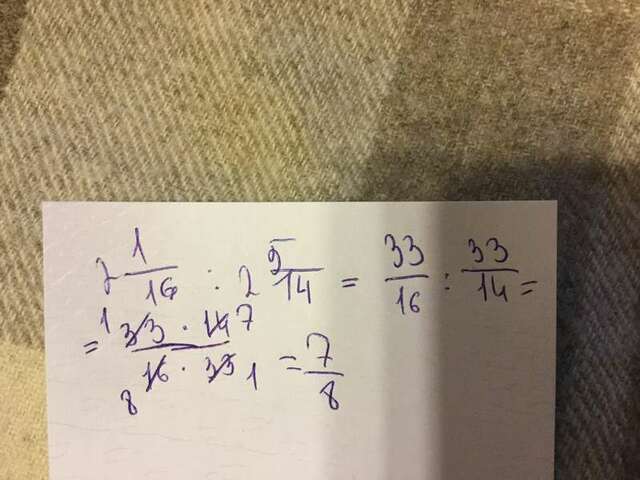 2 1/16 : 2 5/14 = 33/16 : 33/14 =
= 33 · 14 / 16 · 33 = 7/8
1 7
8 1